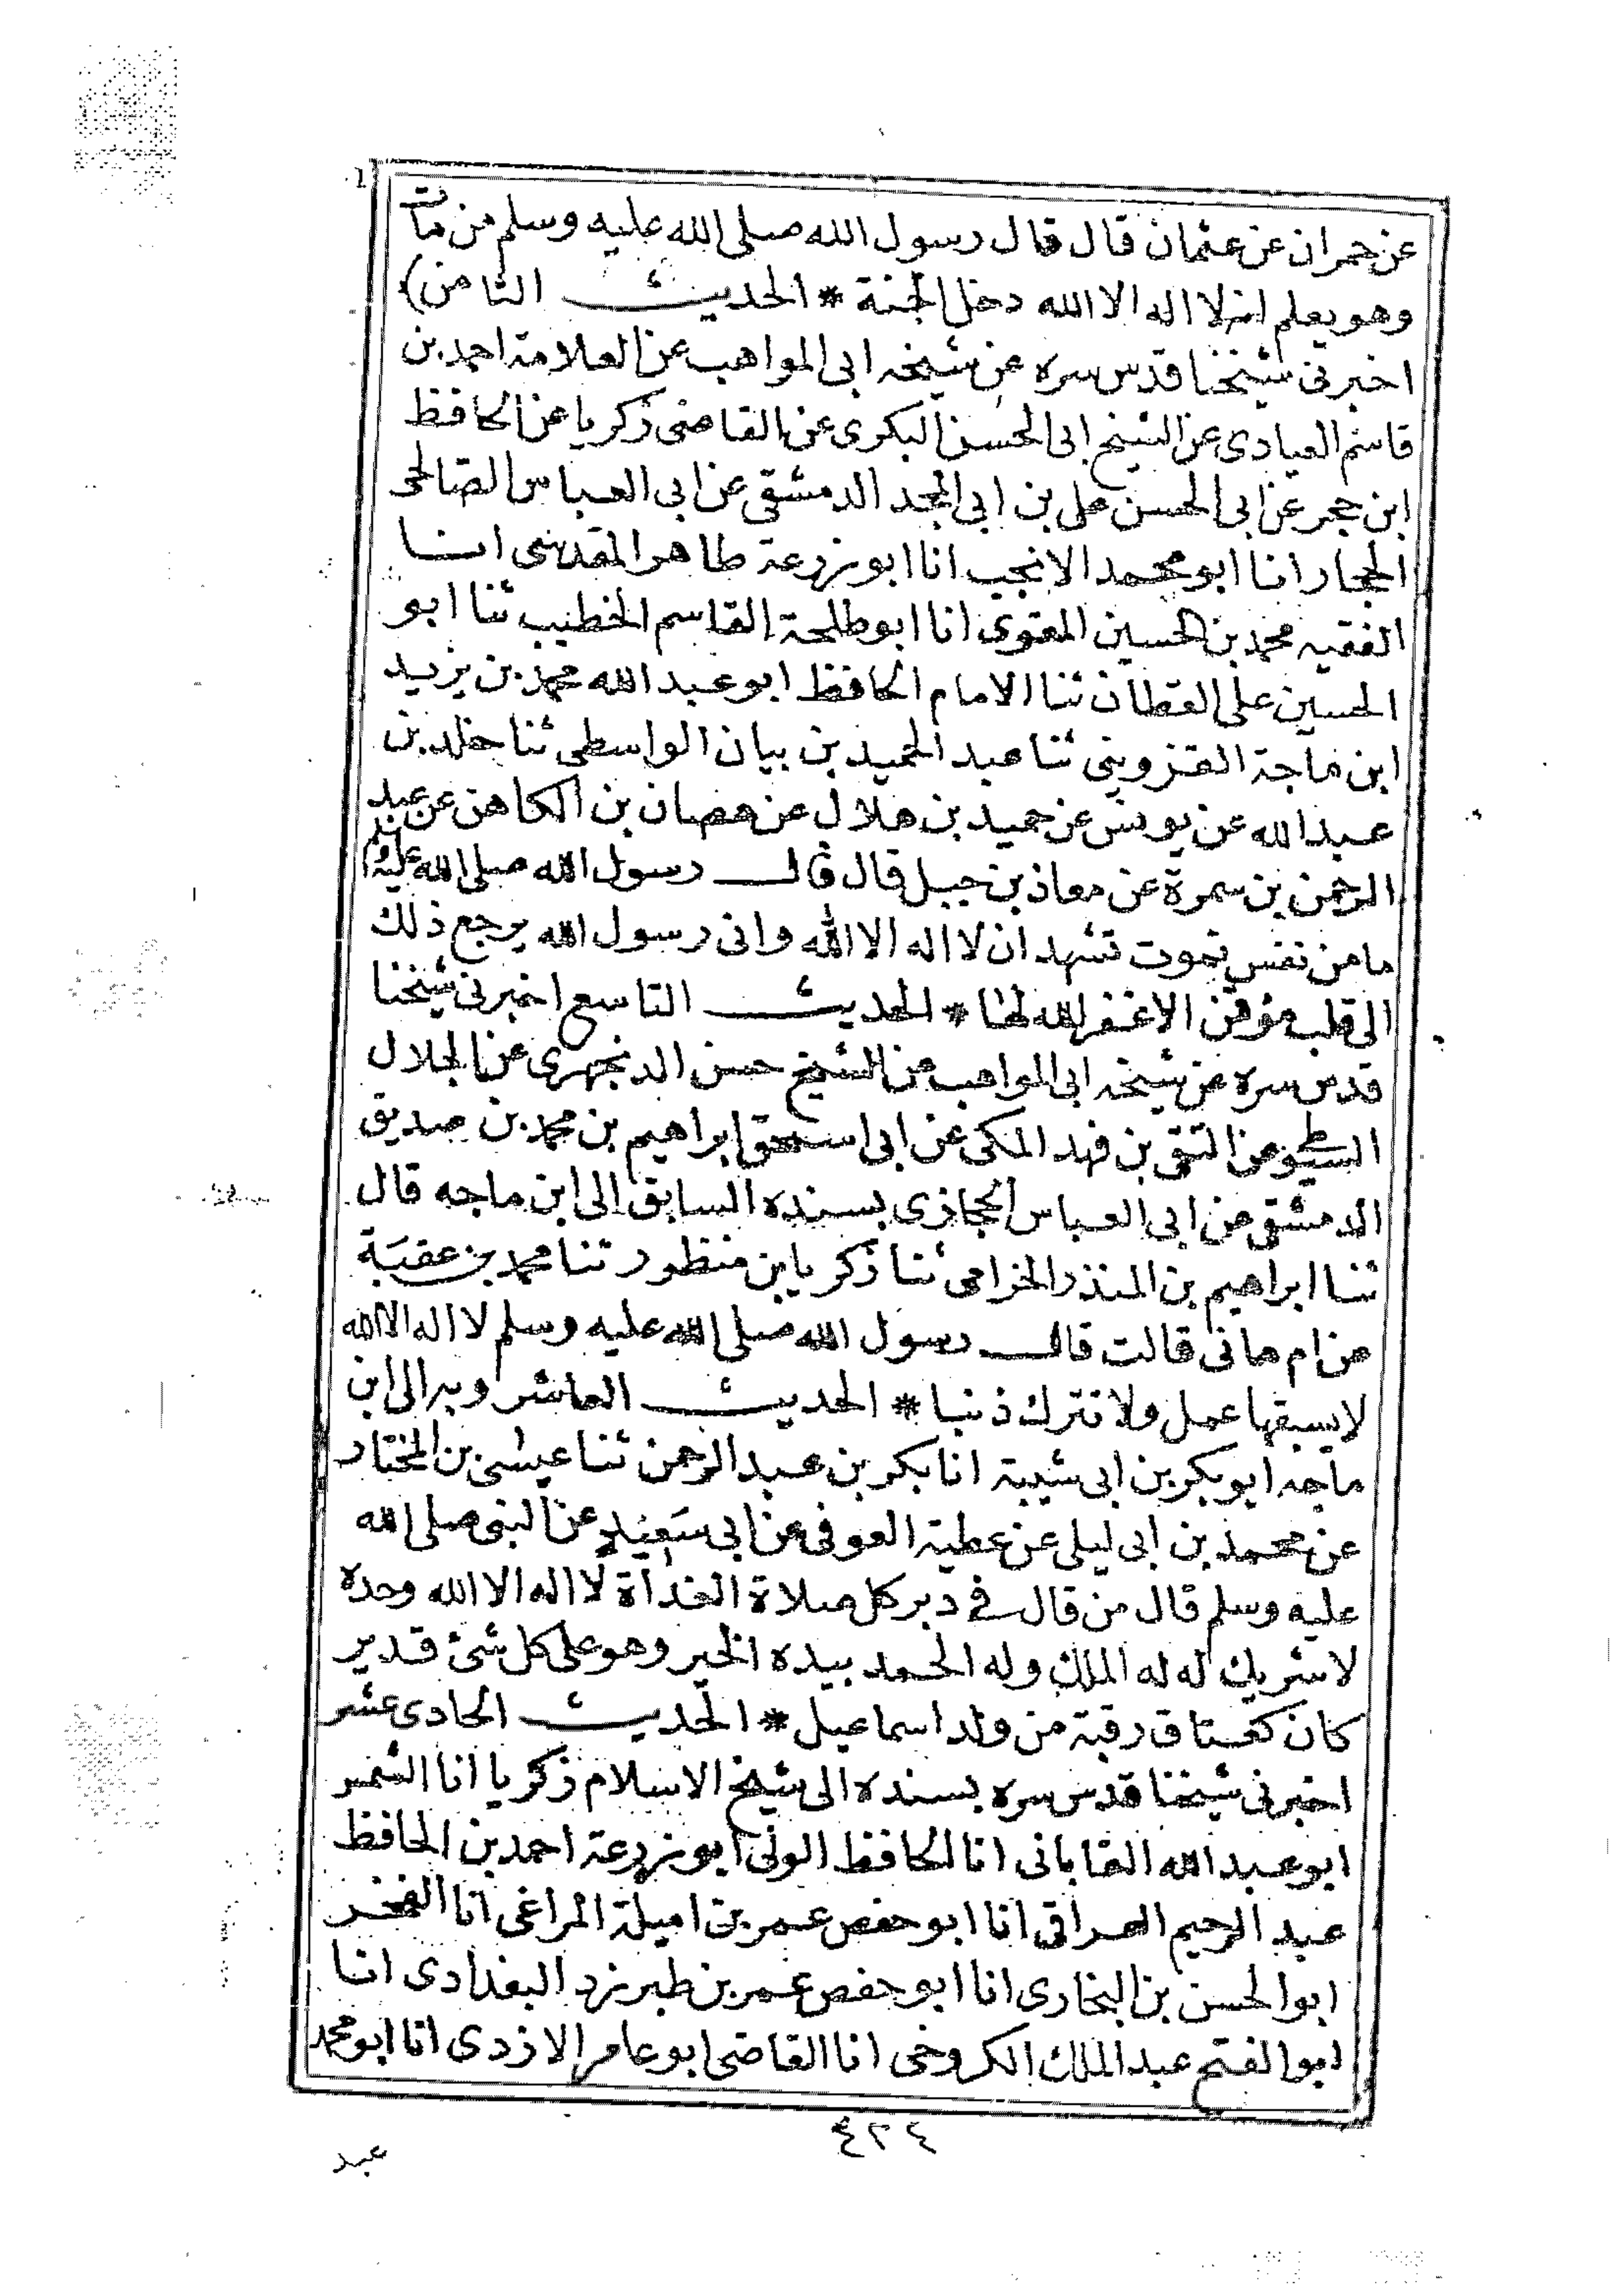 عن حمران عن عثمان قال قال رسول الله صلى الله عليه وسلم من مات
وهو يعلم انه لا اله الا الله دخل الجنة * الحديث الثامن)
اخبرنى شيخنا قدس سره عن شيخه ابى المواهب عن العلامة احمد بن
قاسم العبادى عن الشيخ ابى الحسن البكرى عن القاضى زكريا عن الحافظ
ابن حجر عن ابى الحسن على بن ابى المجد الدمشقى عن ابى العباس الصالحى
الحجار انا ابو محمد الانجب انا ابو زرعة طاهر المقدسى انا
الفقيه محمد بن الحسين المقوى انا ابو طلحة القاسم الخطيب ثنا ابو
الحسين على القطان ثنا الامام الحافظ ابو عبد الله محمد بن يزيد
ابن ماجة القزوينى ثنا عبد الحميد بن بيان الواسطى ثنا خالد بن
عبد الله عن يونس عن حميد بن هلال عن هصان بن الكاهن عن عبد
الرحمن بن سمرة عن معاذ بن جبل قال قال رسول الله صلى الله عليه وسلم
ما من نفس تموت تشهد ان لا اله الا الله وانى رسول الله يرجع ذلك
الى قلب مؤقن الا غفر الله لها * الحديث التاسع اخبرنى شيخنا
قدس سره عن شيخه ابى المواهب عن الشيخ حسن الدنجهرى عن الجلال
السيوطى عن التقى بن فهد المكى عن ابى اسحق ابراهيم بن محمد بن صديق
الدمشقى عن ابى العباس الحجازى بسنده السابق الى ابن ماجه قال
ثنا ابراهيم بن المنذر الخزامى ثنا زكريا بن منظور ثنا محمد بن عقبة
عن ام هانى قالت قال رسول الله صلى الله عليه وسلم لا اله الا الله
لا يسبقها عمل ولا تترك ذنبا * الحديث العاشر وبه الى ابن
ماجه ابو بكر بن ابى شيبة انا بكر بن عبد الرحمن ثنا عيسى بن المختار
عن محمد بن ابى ليلى عن عطية العوفى عن ابى سعيد عن النبى صلى الله
عليه وسلم قال من قال فى دبر كل صلاة الغداة لا اله الا الله وحده
لا شريك له له الملك وله الحمد بيده الخير وهو على كل شئ قدير
كان كعتاق رقبة من ولد اسماعيل * الحديث الحادى عشر
اخبرنى شيخنا قدس سره بسنده الى شيخ الاسلام زكريا انا الشمس
ابو عبد الله القاباتى انا الحافظ الولى ابو زرعة احمد بن الحافظ
عبد الرحيم العراقى انا ابو حفص عمر بن اميلة المراغى انا الفخر
ابو الحسن بن البخارى انا ابو حفص عمر بن طبرزد البغدادى انا
ابو الفتح عبد الملك الكروخى انا القاضى ابو عامر الازدى انا ابو محمد
٤٢٤
عبد